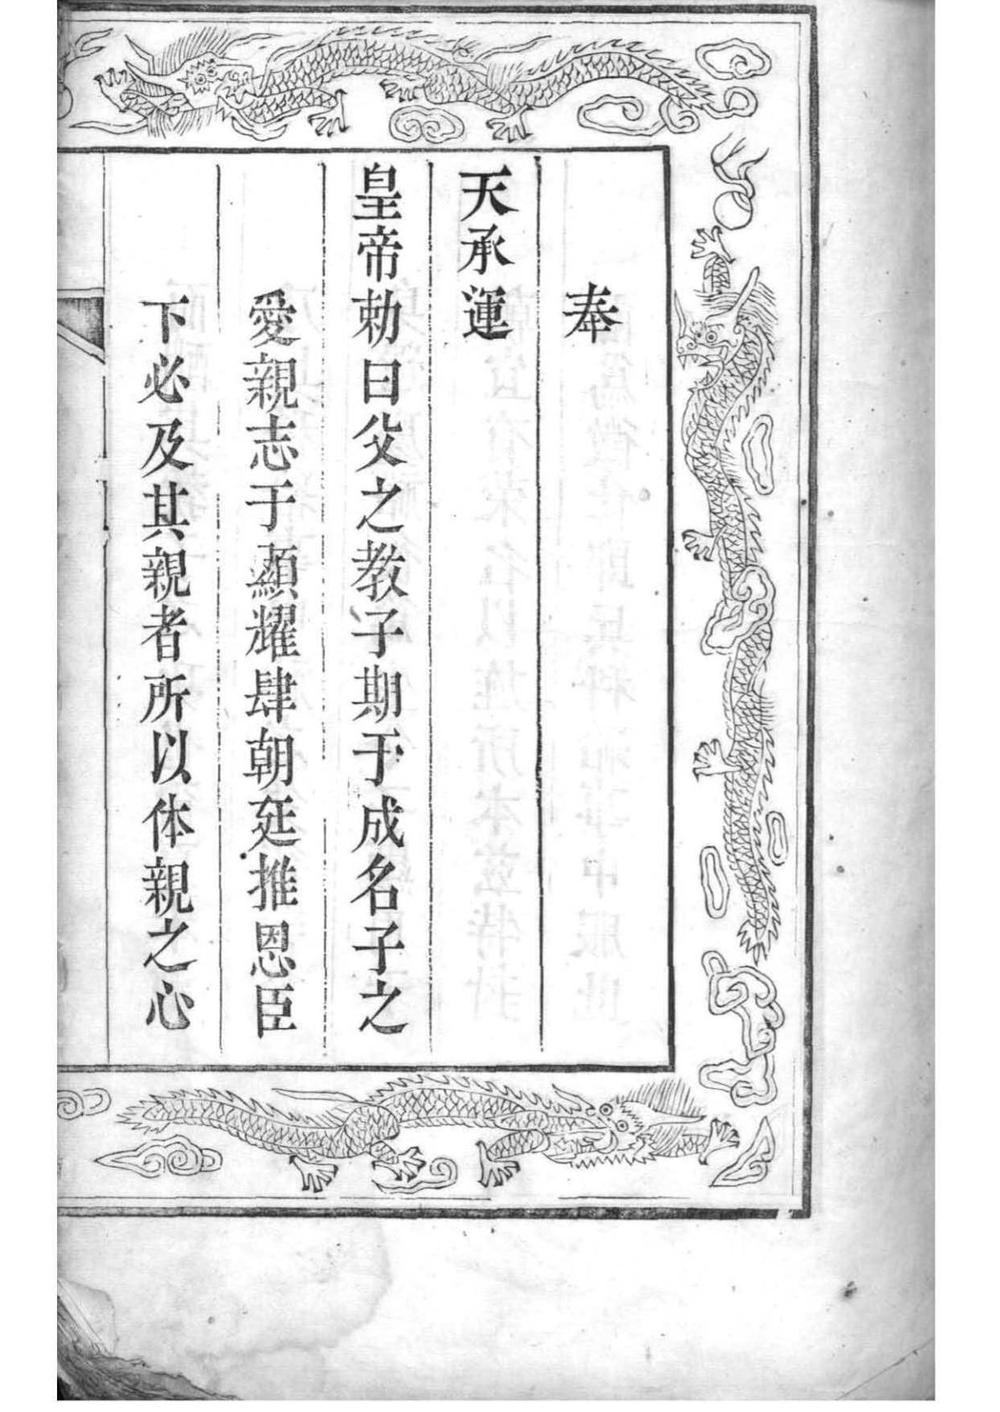 奉
天承運
皇帝勅曰父之教子期于成名子之
愛親志于顯耀肆朝廷推恩臣
下必及其親者所以体親之心